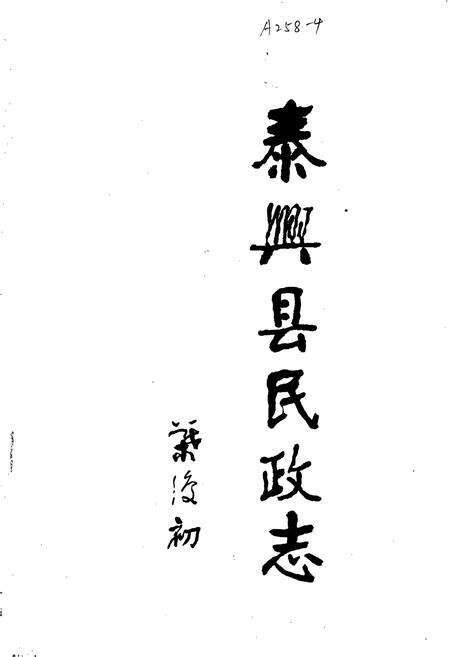 A258-4
泰興县民政志
葉浚初